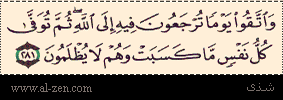 وَٱتَّقُوا۟ يَوْمًا تُرْجَعُونَ فِيهِ إِلَى ٱللَّهِ ۖ ثُمَّ تُوَفَّىٰ
كُلُّ نَفْسٍ مَّا كَسَبَتْ وَهُمْ لَا يُظْلَمُونَ ٢٨١
www.al-zen.com شذى